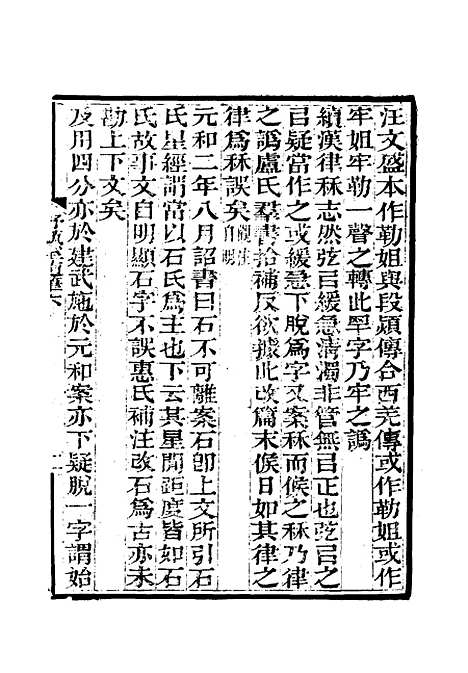 汪文盛本作勒姐與段熲傳合西羌傳或作勒姐或作
牢姐牢勒一聲之轉此罕字乃牢之譌
續漢律秝志然弦㠯緩急清濁非管無㠯正也弦㠯之
㠯疑當作之或緩急下脫爲字又案秝而候之秝乃律
之譌盧氏羣書拾補反欲據此改篇末候日如其律之
律爲秝誤矣觀注自明
元和二年八月詔書曰石不可離案石卽上文所引石
氏星經謂當以石氏爲主也下云其星閒距度皆如石
氏故事文自明顯石字不誤惠氏補注改石爲古亦未
勘上下文矣
及用四分亦於建武施於元和案亦下疑脫一字謂始